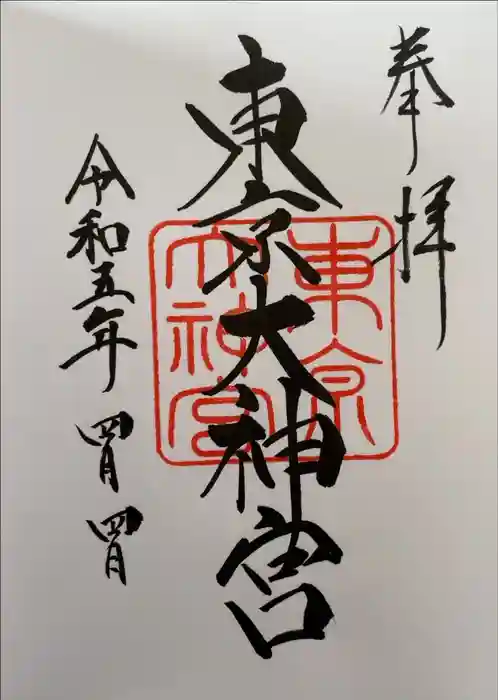 奉拝
東京大神宮
東京
大神宮
令和五年 四月 四日